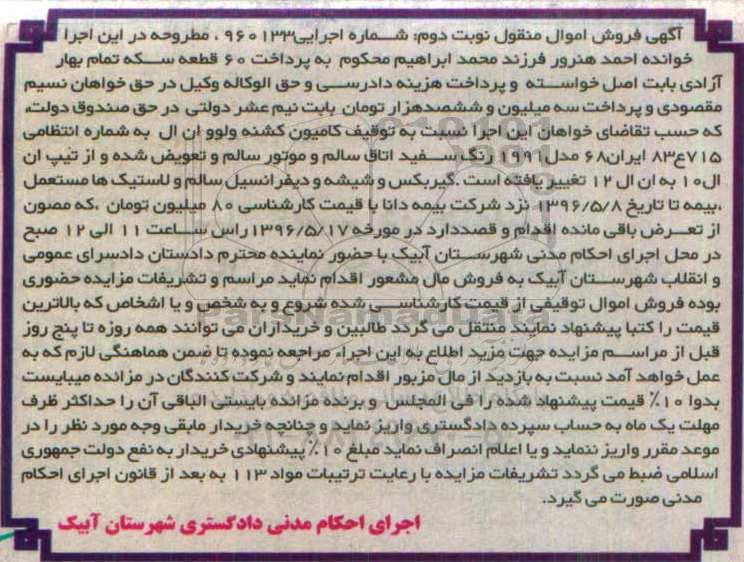 آگهی فروش اموال منقول نوبت دوم: شماره اجرایی۹۶۰۱۳۳ ، مطروحه در این اجرا
خوانده احمد هنرور فرزند محمد ابراهیم محکوم به پرداخت ۶۰ قطعه سکه تمام بهار
آزادی بابت اصل خواسته و پرداخت هزینه دادرسی و حق الوکاله وکیل در حق خواهان نسیم
مقصودی و پرداخت سه میلیون و ششصدهزار تومان بابت نیم عشر دولتی در حق صندوق دولت،
که حسب تقاضای خواهان این اجرا نسبت به توقیف کامیون کشنه ولوو ان ال به شماره انتظامی
۷۱۵ع۸۳ ایران۶۸ مدل۱۹۹۱ رنگ سفید اتاق سالم و موتور سالم و تعویض شده و از تیپ ان
ال۱۰ به ان ال ۱۲ تغییر یافته است .گیربکس و شیشه و دیفرانسیل سالم و لاستیک ها مستعمل
،بیمه تا تاریخ ۱۳۹۶/۵/۸ نزد شرکت بیمه دانا با قیمت کارشناسی ۸۰ میلیون تومان ،که مصون
از تعرض باقی مانده اقدام و قصددارد در مورخه ۱۳۹۶/۵/۱۷ راس ساعت ۱۱ الی ۱۲ صبح
در محل اجرای احکام مدنی شهرستان آبیک با حضور نماینده محترم دادستان دادسرای عمومی
و انقلاب شهرستان آبیک به فروش مال مشعور اقدام نماید مراسم و تشریفات مزایده حضوری
بوده فروش اموال توقیفی از قیمت کارشناسی شده شروع و به شخص و یا اشخاص که بالاترین
قیمت را کتبا پیشنهاد نمایند منتقل می گردد طالبین و خریداران می توانند همه روزه تا پنج روز
قبل از مراسم مزایده جهت مزید اطلاع به این اجراء مراجعه نموده تا ضمن هماهنگی لازم که به
عمل خواهد آمد نسبت به بازدید از مال مزبور اقدام نمایند و شرکت کنندگان در مزائده میبایست
بدوا ۱۰٪ قیمت پیشنهاد شده را فی المجلس و برنده مزائده بایستی الباقی آن را حداکثر ظرف
مهلت یک ماه به حساب سپرده دادگستری واریز نماید و چنانچه خریدار مابقی وجه مورد نظر را در
موعد مقرر واریز ننماید و یا اعلام انصراف نماید مبلغ ۱۰٪ پیشنهادی خریدار به نفع دولت جمهوری
اسلامی ضبط می گردد تشریفات مزایده با رعایت ترتیبات مواد ۱۱۳ به بعد از قانون اجرای احکام
مدنی صورت می گیرد.
اجرای احکام مدنی دادگستری شهرستان آبیک
ParsNamadData